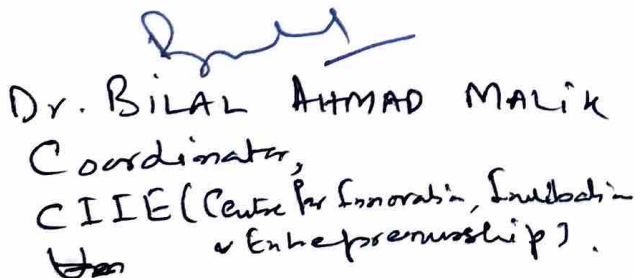 Dr. BILAL AHMAD MALIK
Coordinator,
CIIE (Centre for Innovation, Incubation
& Entrepreneurship).